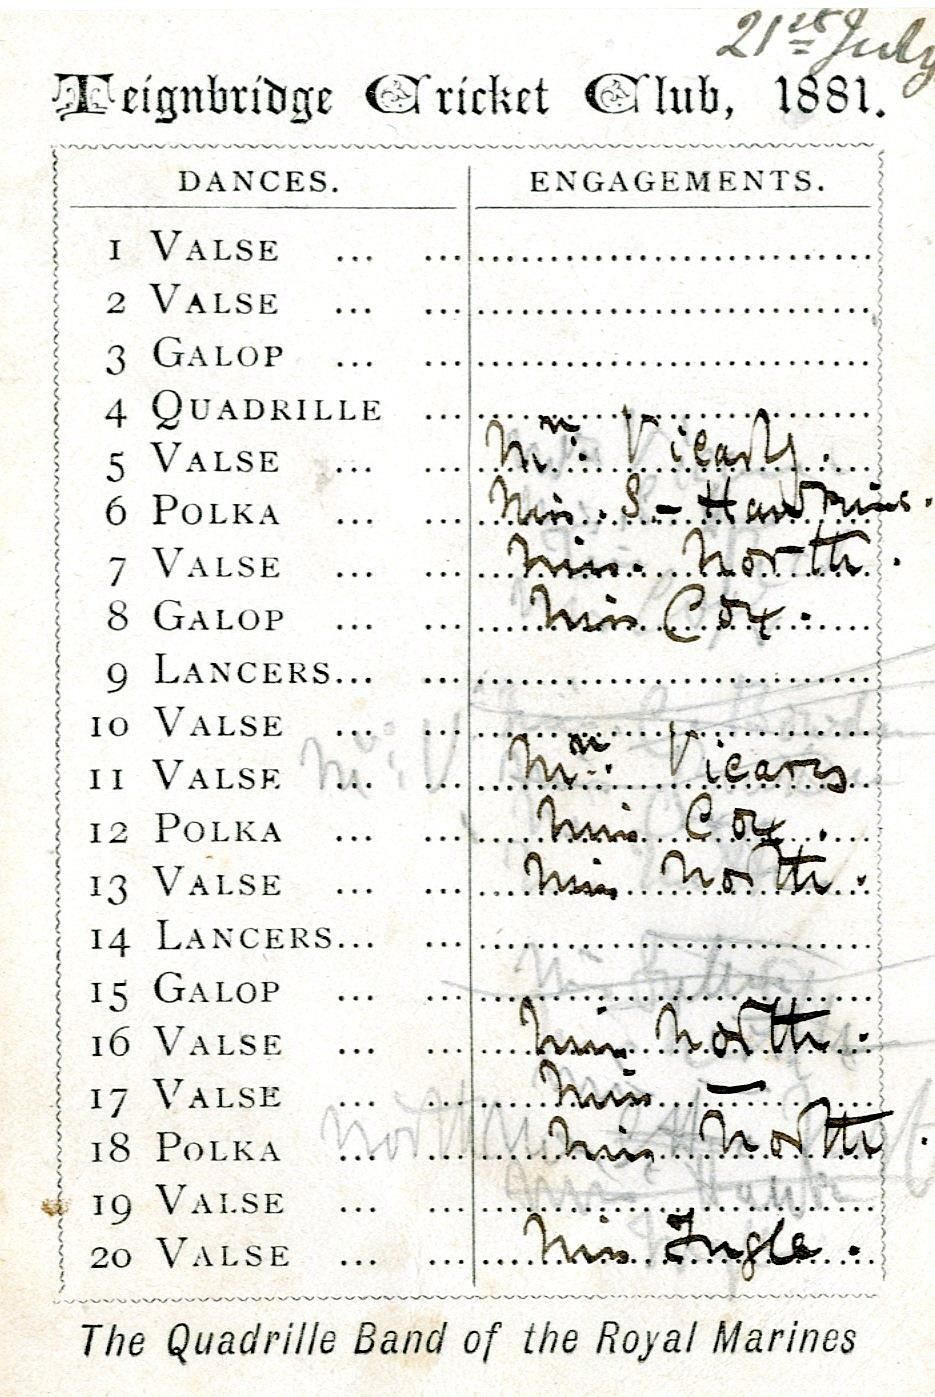 21st July
Teignbridge Cricket Club, 1881.
DANCES. ENGAGEMENTS.
1 VALSE ... ...
2 VALSE ... ...
3 GALOP ... ...
4 QUADRILLE ...
5 VALSE ... ... Mrs: Vicary.
6 POLKA ... ... Miss. S- Hawkins.
7 VALSE ... ... Miss. North.
8 GALOP ... ... Miss Cox.
9 LANCERS... ...
10 VALSE ... ...
11 VALSE ... ... Mrs: Vicars
12 POLKA ... ... Miss Cox.
13 VALSE ... ... Miss North.
14 LANCERS... ...
15 GALOP ... ...
16 VALSE ... ... Miss North.
17 VALSE ... ... Miss —
18 POLKA ... ... Miss North.
19 VALSE ... ...
20 VALSE ... ... Miss Ingle.
The Quadrille Band of the Royal Marines